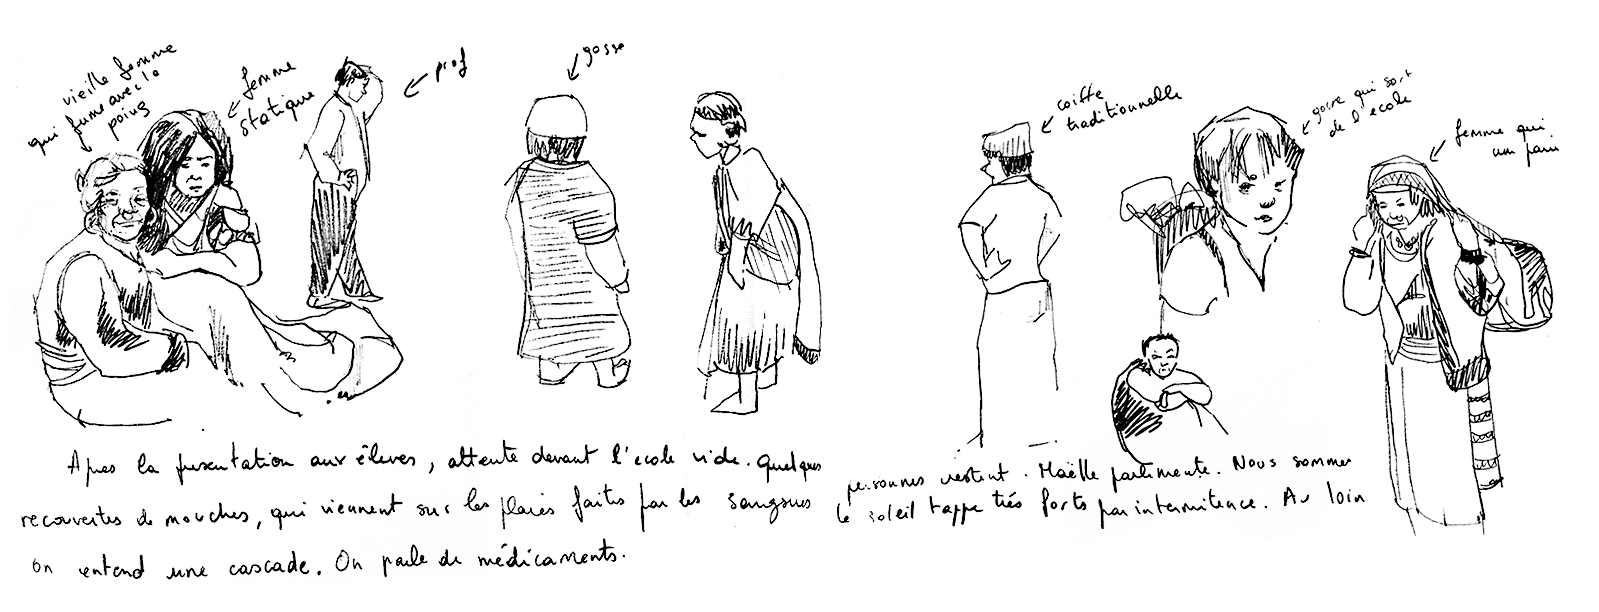 vieille femme
qui fume avec le
poing
femme
statique
prof
gosse
coiffe
traditionnelle
gosse qui sort
de l'ecole
femme qui
Apres la presentation aux élèves, attente devant l'ecole vide. Quelques personnes restent. Maëlle parlimente. Nous sommes
recouvertes de mouches, qui viennent sur les plaies faites par les sangsues le soleil tappe très forts par intermitence. Au loin
on entend une cascade. On parle de médicaments.